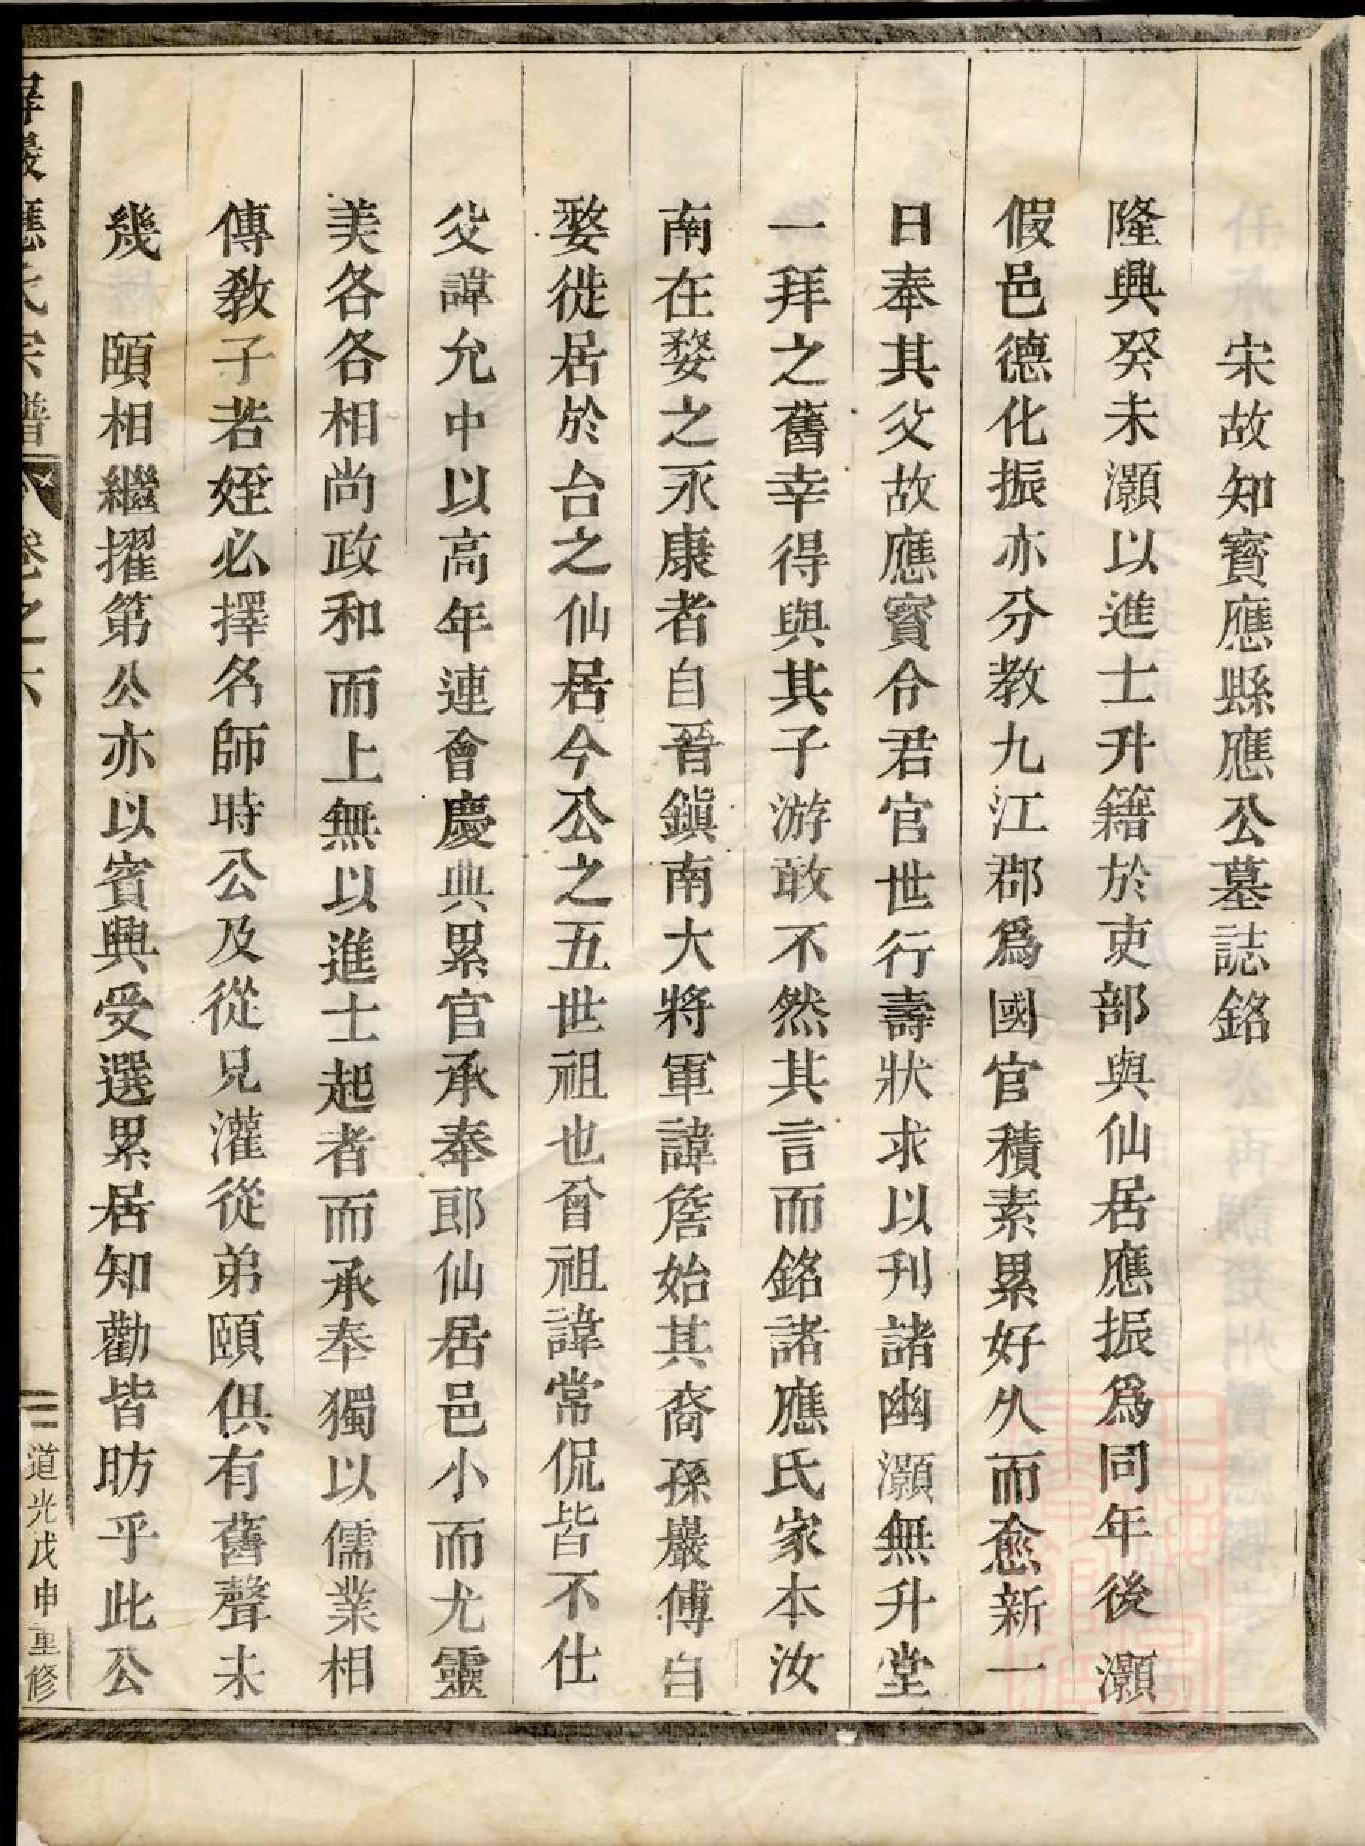 宋故知寳應縣應公墓誌銘
隆興癸未灝以進士升籍於吏部與仙居應振爲同年後灝
假邑德化振亦分教九江郡爲國官積素累好久而愈新一
日奉其父故應寳令君官世行壽狀求以刋諸幽灝無升堂
一拜之舊幸得與其子游敢不然其言而銘諸應氏家本汝
南在婺之永康者自晉鎭南大將軍諱詹始其裔孫巖傅自
婺徙居於台之仙居今公之五世祖也曾祖諱常侃皆不仕
父諱允中以高年連會慶典累官承奉郎仙居邑小而尤靈
美各各相尚政和而上無以進士起者而承奉獨以儒業相
傳教子若姪必擇名師時公及從兄灌從弟頤俱有舊聲未
幾　頤相繼擢第公亦以賓興受選累居知勸皆昉乎此公
屏巖應氏宗譜　卷之六　二　道光戊申重修